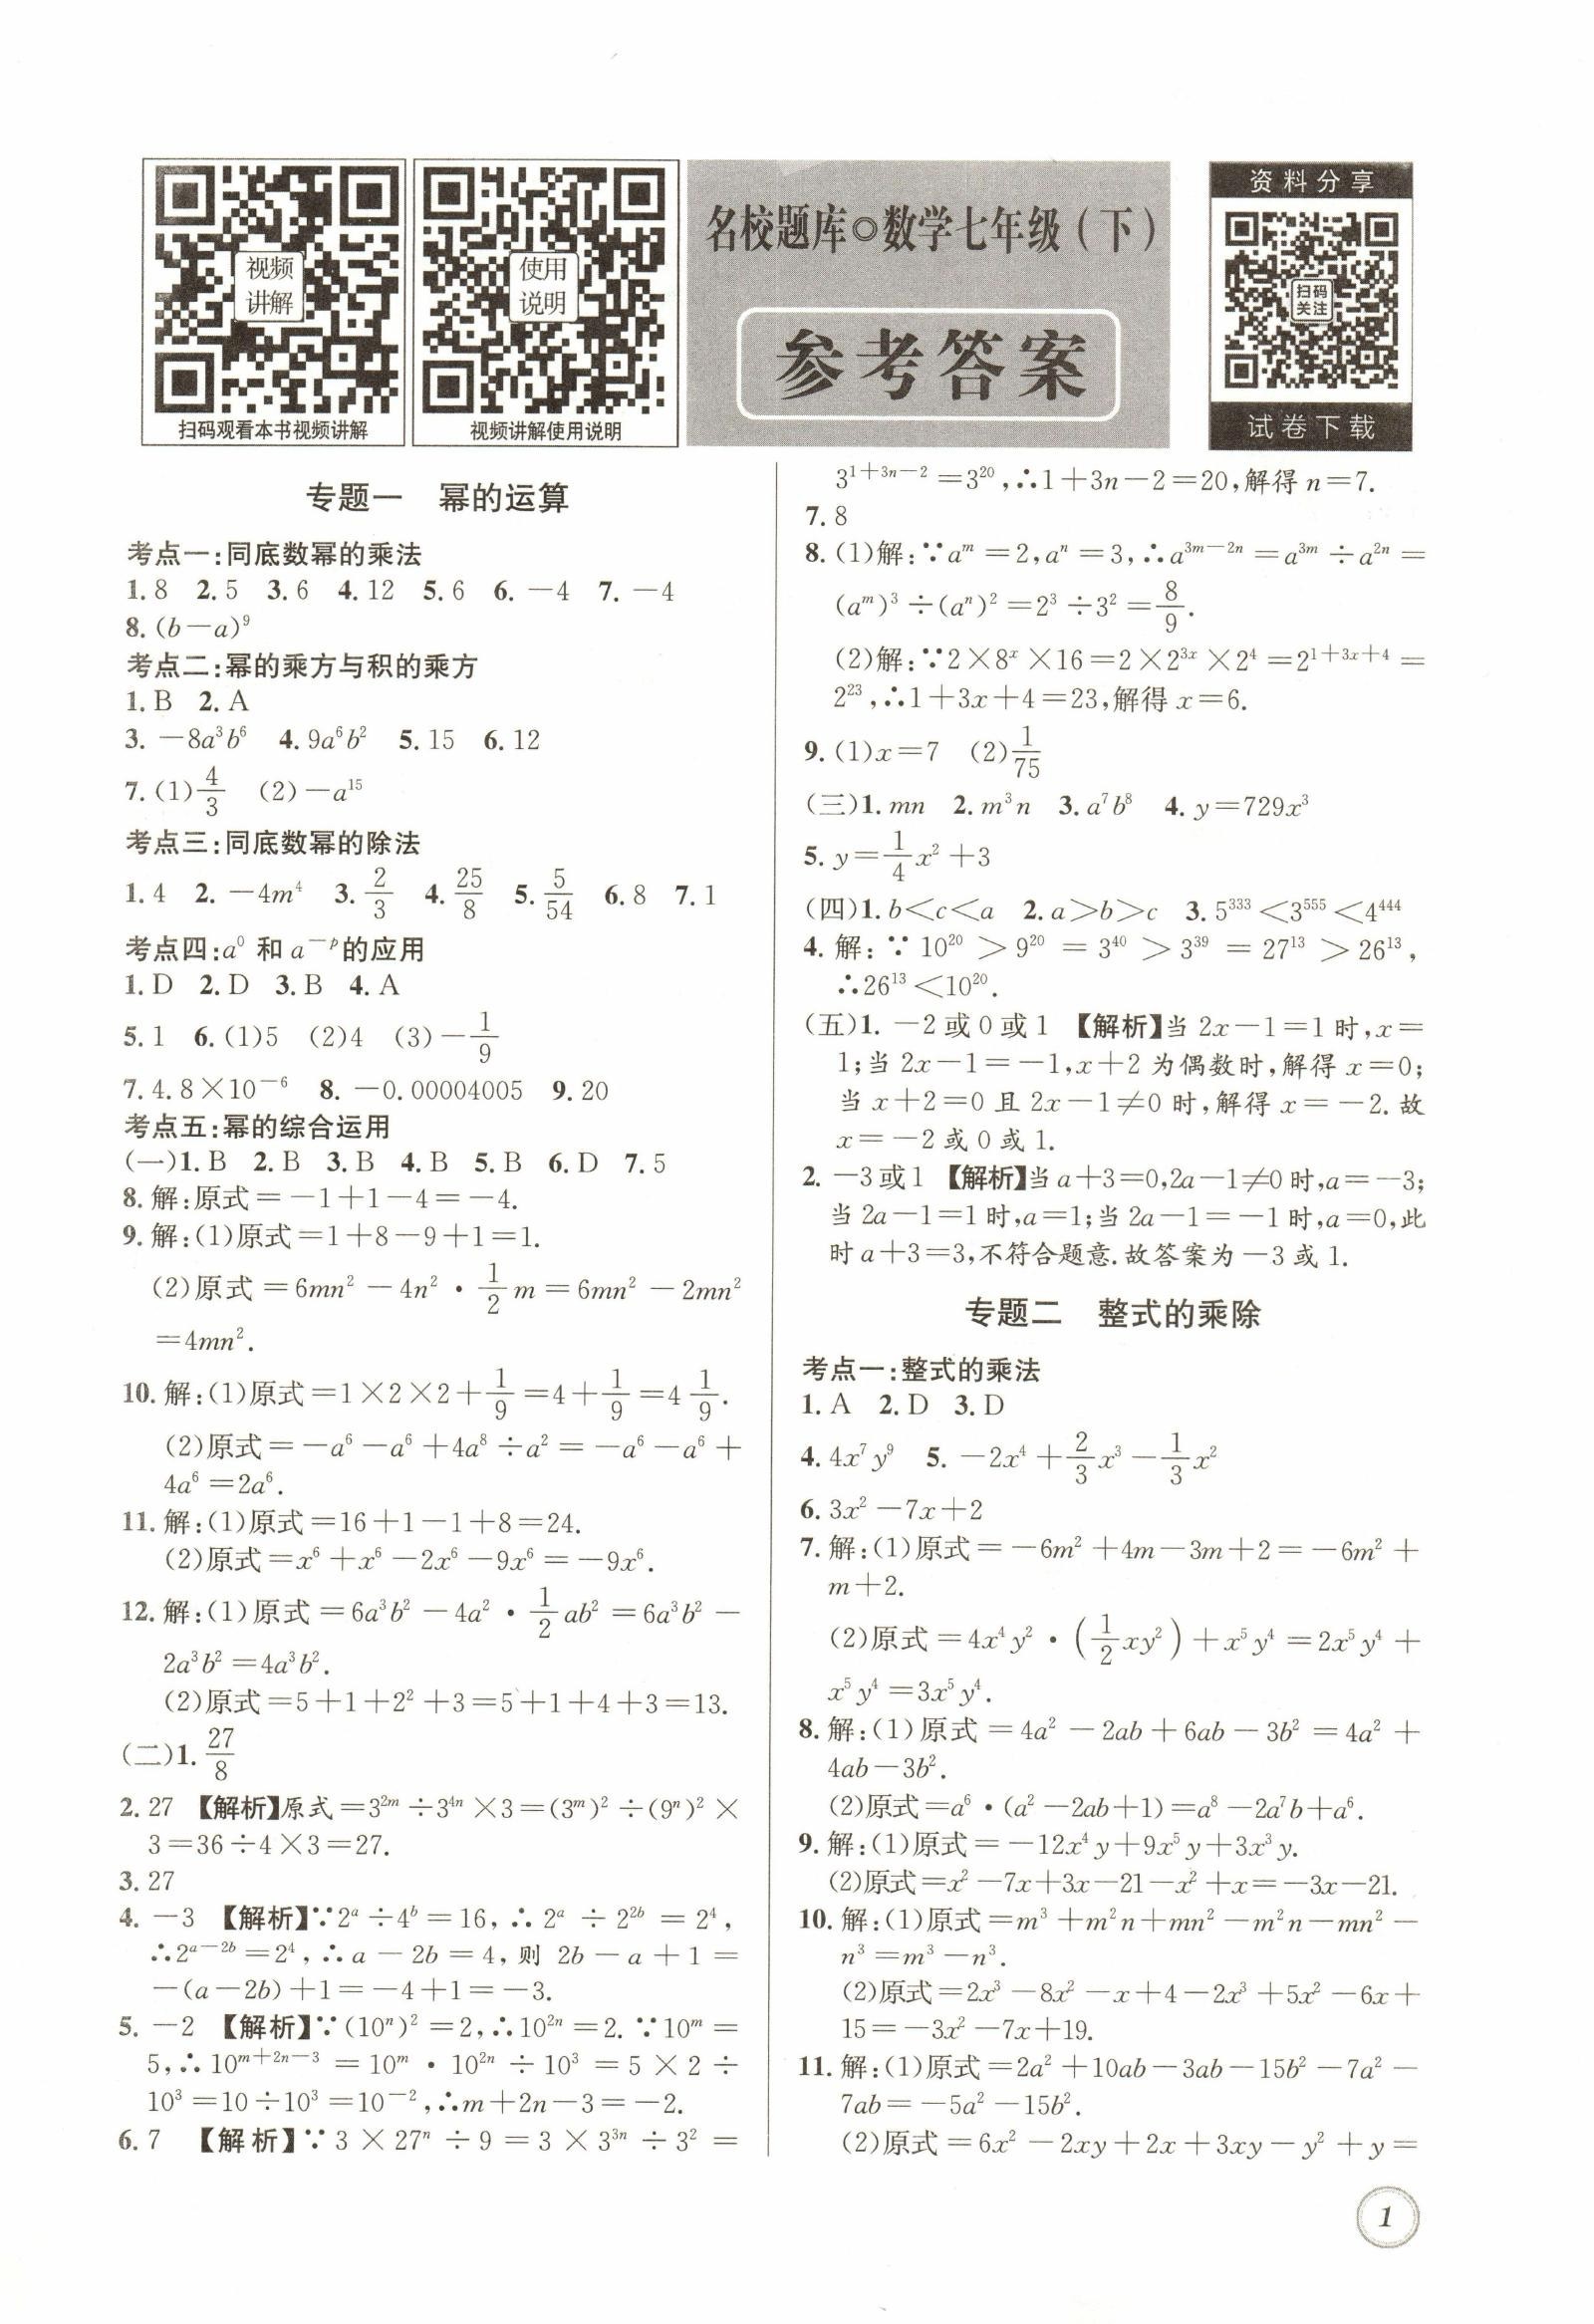 视频
讲解
扫码观看本书视频讲解
使用
说明
视频讲解使用说明
名校题库◎数学七年级(下)
参考答案
资料分享
扫码
关注
试卷下载
专题一 幂的运算
考点一:同底数幂的乘法
1. 8 2. 5 3. 6 4. 12 5. 6 6. −4 7. −4
8. (b−a)⁹
考点二:幂的乘方与积的乘方
1. B 2. A
3. −8a³b⁶ 4. 9a⁶b² 5. 15 6. 12
7. (1)4/3 (2)−a¹⁵
考点三:同底数幂的除法
1. 4 2. −4m⁴ 3. 2/3 4. 25/8 5. 5/54 6. 8 7. 1
考点四:a⁰ 和 a⁻ᵖ的应用
1. D 2. D 3. B 4. A
5. 1 6. (1)5 (2)4 (3)−1/9
7. 4.8×10⁻⁶ 8. −0.00004005 9. 20
考点五:幂的综合运用
(一)1. B 2. B 3. B 4. B 5. B 6. D 7. 5
8. 解:原式=−1+1−4=−4.
9. 解:(1)原式=1+8−9+1=1.
(2)原式=6mn²−4n²·1/2m=6mn²−2mn²
=4mn².
10. 解:(1)原式=1×2×2+1/9=4+1/9=4 1/9.
(2)原式=−a⁶−a⁶+4a⁸÷a²=−a⁶−a⁶+
4a⁶=2a⁶.
11. 解:(1)原式=16+1−1+8=24.
(2)原式=x⁶+x⁶−2x⁶−9x⁶=−9x⁶.
12. 解:(1)原式=6a³b²−4a²·1/2ab²=6a³b²−
2a³b²=4a³b².
(2)原式=5+1+2²+3=5+1+4+3=13.
(二)1. 27/8
2. 27 【解析】原式=3²ᵐ÷3⁴ⁿ×3=(3ᵐ)²÷(9ⁿ)²×
3=36÷4×3=27.
3. 27
4. −3 【解析】∵2ᵃ÷4ᵇ=16,∴2ᵃ÷2²ᵇ=2⁴,
∴2ᵃ⁻²ᵇ=2⁴,∴a−2b=4,则 2b−a+1=
−(a−2b)+1=−4+1=−3.
5. −2 【解析】∵(10ⁿ)²=2,∴10²ⁿ=2.∵10ᵐ=
5,∴10ᵐ⁺²ⁿ⁻³=10ᵐ·10²ⁿ÷10³=5×2÷
10³=10÷10³=10⁻²,∴m+2n−3=−2.
6. 7 【解析】∵3×27ⁿ÷9=3×3³ⁿ÷3²=
3¹⁺³ⁿ⁻²=3²⁰,∴1+3n−2=20,解得 n=7.
7. 8
8. (1)解:∵aᵐ=2,aⁿ=3,∴a³ᵐ⁻²ⁿ=a³ᵐ÷a²ⁿ=
(aᵐ)³÷(aⁿ)²=2³÷3²=8/9.
(2)解:∵2×8ˣ×16=2×2³ˣ×2⁴=2¹⁺³ˣ⁺⁴=
2²³,∴1+3x+4=23,解得 x=6.
9. (1)x=7 (2)1/75
(三)1. mn 2. m³n 3. a⁷b⁸ 4. y=729x³
5. y=1/4x²+3
(四)1. b<c<a 2. a>b>c 3. 5³³³<3⁵⁵⁵<4⁴⁴⁴
4. 解:∵10²⁰>9²⁰=3⁴⁰>3³⁹=27¹³>26¹³,
∴26¹³<10²⁰.
(五)1. −2或0或1 【解析】当 2x−1=1 时,x=
1;当 2x−1=−1,x+2 为偶数时,解得 x=0;
当 x+2=0 且 2x−1≠0 时,解得 x=−2.故
x=−2 或 0 或 1.
2. −3或1 【解析】当 a+3=0,2a−1≠0 时,a=−3;
当 2a−1=1 时,a=1;当 2a−1=−1 时,a=0,此
时 a+3=3,不符合题意.故答案为−3 或 1.
专题二 整式的乘除
考点一:整式的乘法
1. A 2. D 3. D
4. 4x⁷y⁹ 5. −2x⁴+2/3x³−1/3x²
6. 3x²−7x+2
7. 解:(1)原式=−6m²+4m−3m+2=−6m²+
m+2.
(2)原式=4x⁴y²·(1/2xy²)+x⁵y⁴=2x⁵y⁴+
x⁵y⁴=3x⁵y⁴.
8. 解:(1)原式=4a²−2ab+6ab−3b²=4a²+
4ab−3b².
(2)原式=a⁶·(a²−2ab+1)=a⁸−2a⁷b+a⁶.
9. 解:(1)原式=−12x⁴y+9x⁵y+3x³y.
(2)原式=x²−7x+3x−21−x²+x=−3x−21.
10. 解:(1)原式=m³+m²n+mn²−m²n−mn²−
n³=m³−n³.
(2)原式=2x³−8x²−x+4−2x³+5x²−6x+
15=−3x²−7x+19.
11. 解:(1)原式=2a²+10ab−3ab−15b²−7a²−
7ab=−5a²−15b².
(2)原式=6x²−2xy+2x+3xy−y²+y=
1